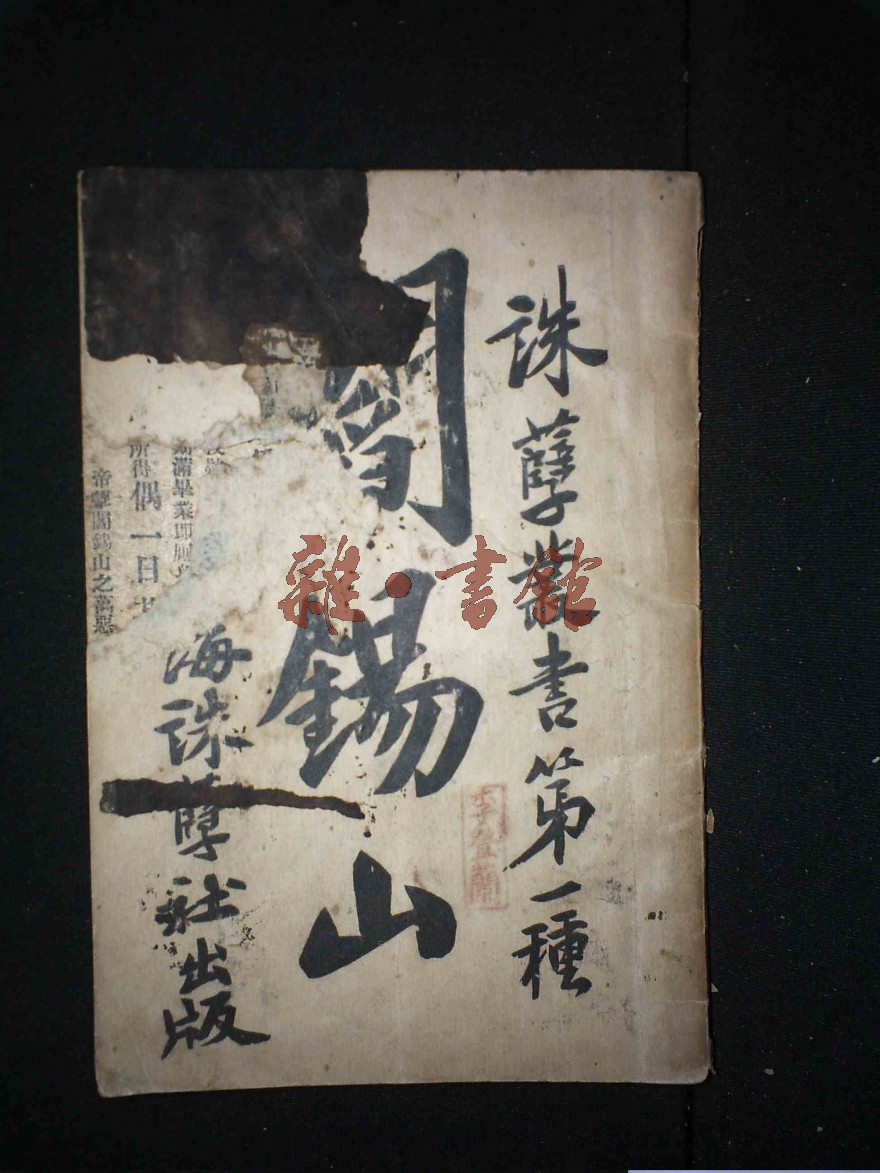 誅孽叢書第一種
閻錫山
海誅孽社出版
滿畢業即
所得偶一日
帝孽閻錫山之萬惡
李宜蘭
雜·書館